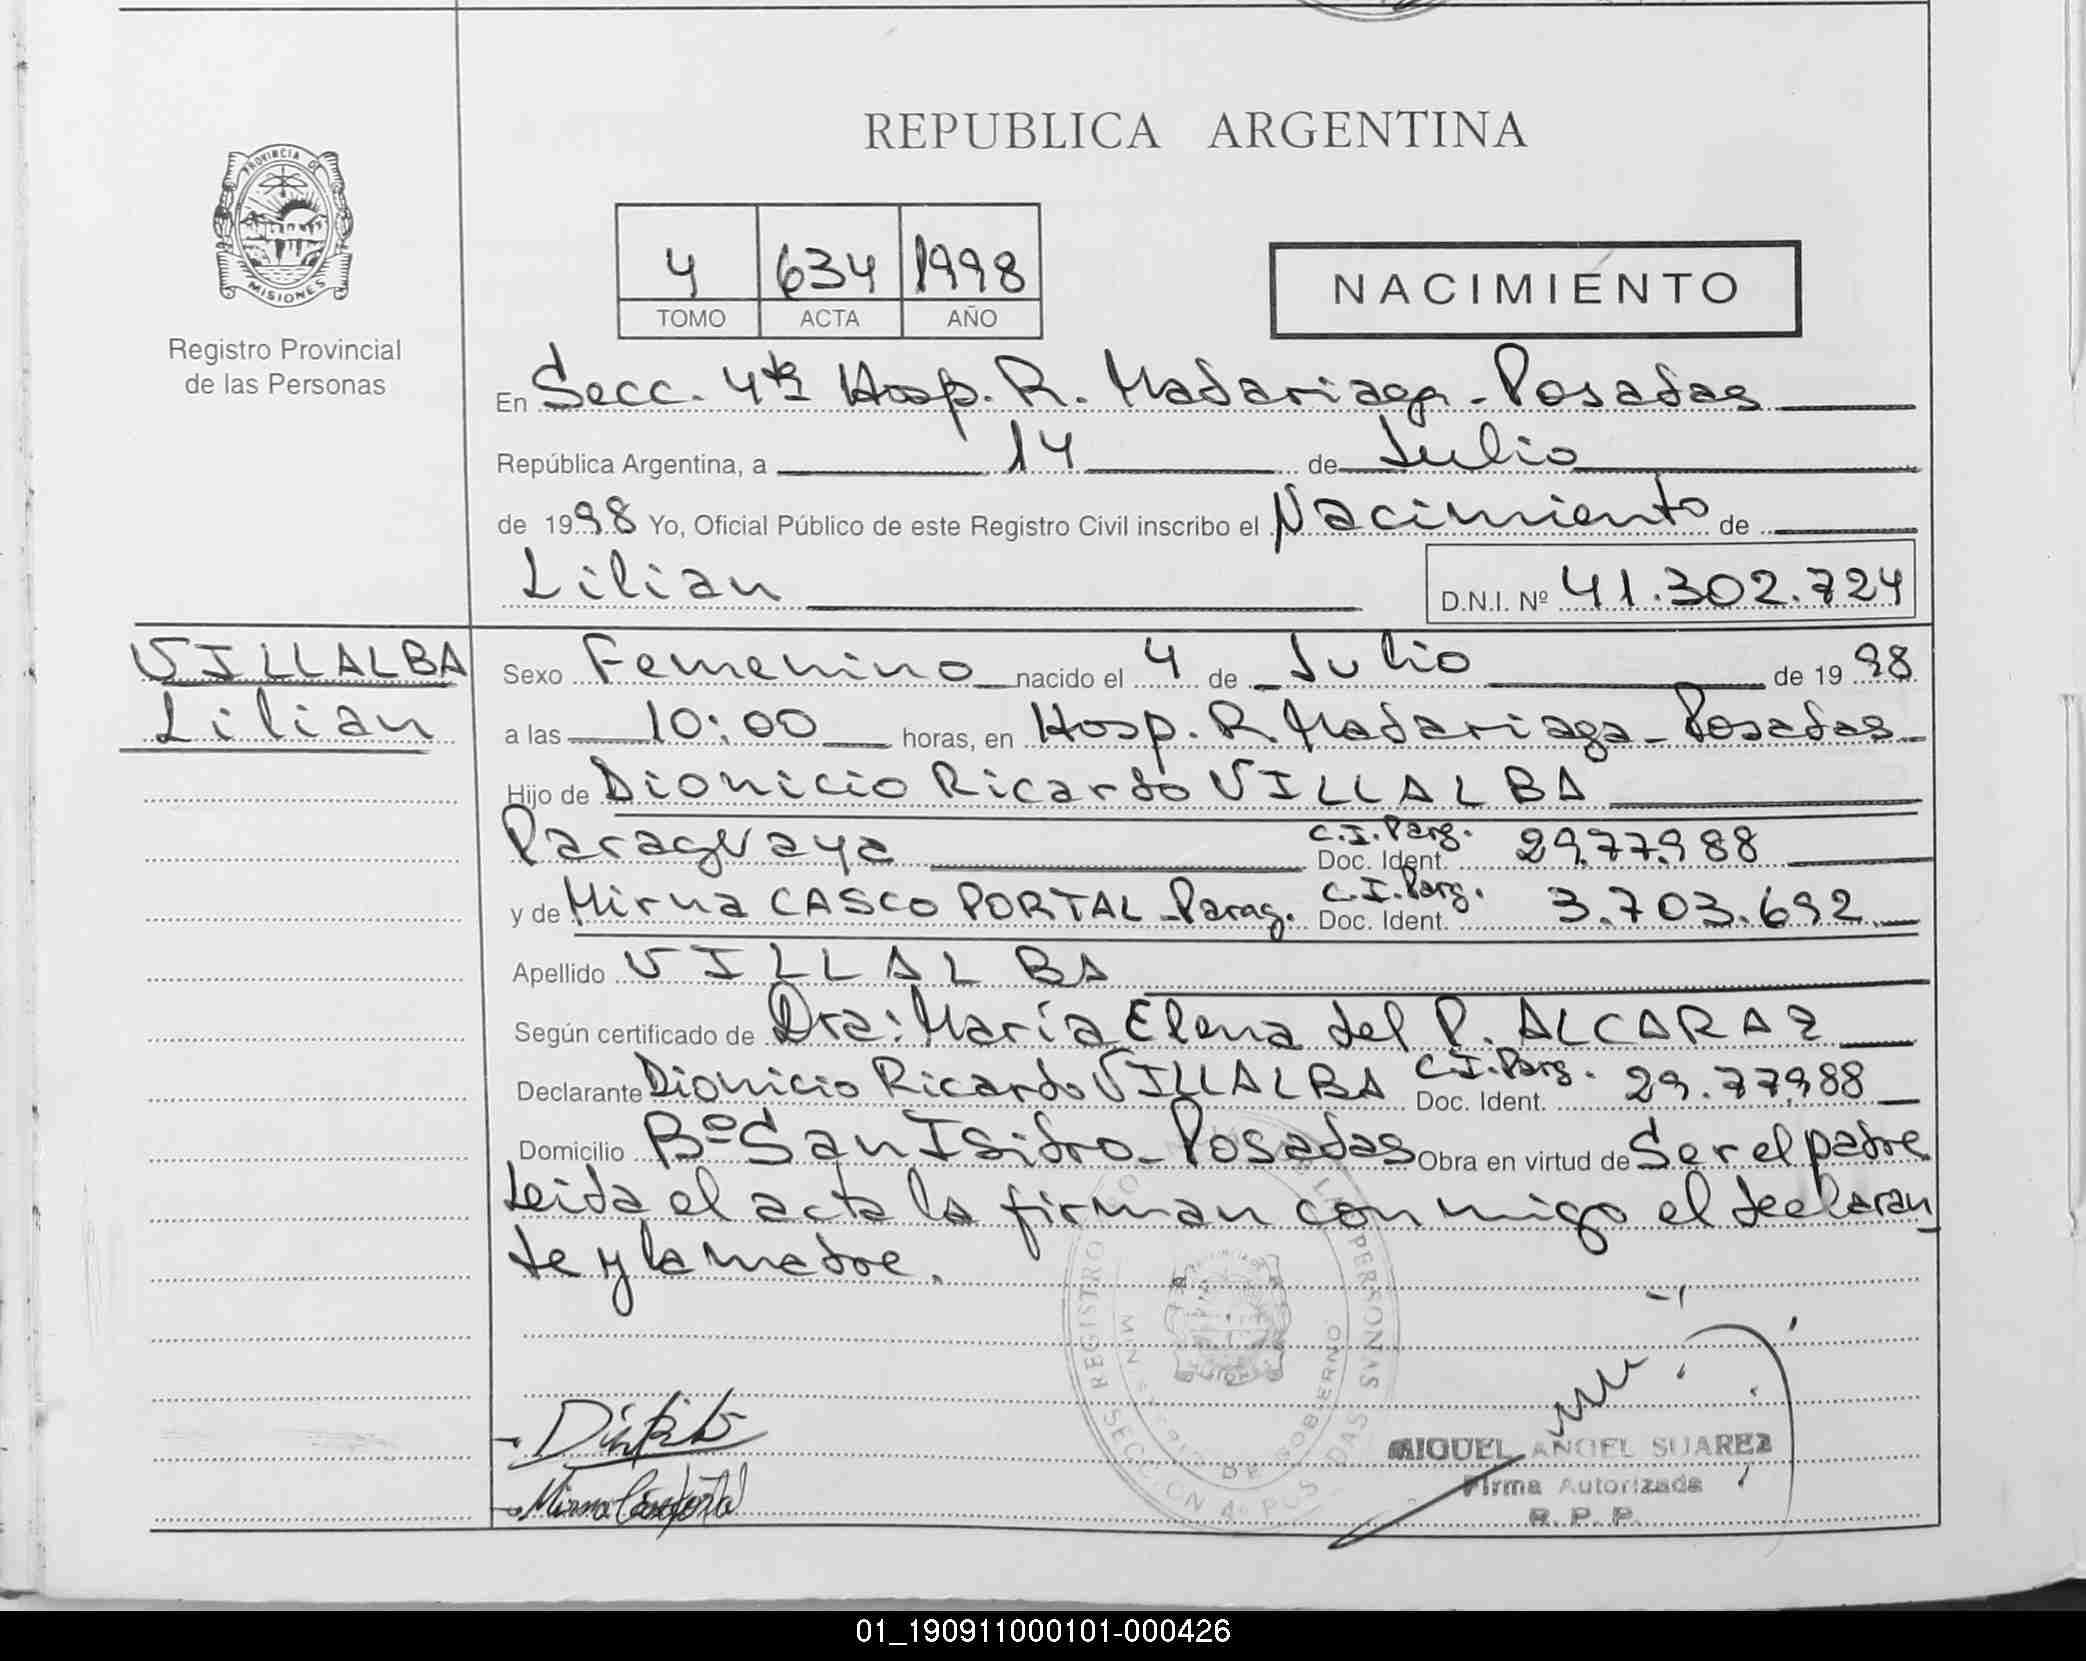 REPUBLICA ARGENTINA
PROVINCIA DE
MISIONES
Registro Provincial
de las Personas
4 634 1998
TOMO ACTA AÑO
NACIMIENTO
En Secc. 4ta Hosp. R. Madariaga - Posadas
República Argentina, a 14 de Julio
de 1998 Yo, Oficial Público de este Registro Civil inscribo el Nacimiento de
Lilian D.N.I. Nº 41.302.724
VILLALBA
Lilian
Sexo Femenino nacido el 4 de Julio de 19 98
a las 10:00 horas, en Hosp. R. Madariaga - Posadas
Hijo de Dionicio Ricardo VILLALBA
Paraguaya C.I. Parg. Doc. Ident. 29.77.988
y de Mirna CASCO PORTAL - Parag. C.I. Parg. Doc. Ident. 3.703.692
Apellido VILLALBA
Según certificado de Dra: María Elena del P. ALCARAZ
Declarante Dionicio Ricardo VILLALBA C.I. Parg. Doc. Ident. 29.77.988
Domicilio Bº San Isidro - Posadas Obra en virtud de Ser el padre
Leida el acta la firman conmigo el declaran
te y la madre.
REGISTRO DE LAS PERSONAS
MINISTERIO DE GOBIERNO
SECCION 4a POSADAS
MIGUEL ANGEL SUAREZ
Firma Autorizada
R. P. P.
01_190911000101-000426